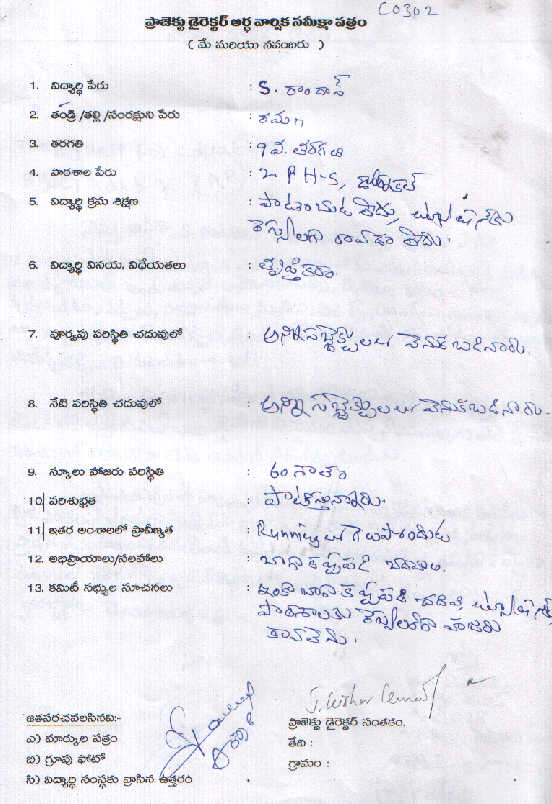 C0302
ప్రాజెక్టు డైరెక్టర్ అర్ధ వార్షిక సమీక్షా పత్రం
( మే మరియు నవంబరు )
1. విద్యార్థి పేరు : S.
2. తండ్రి /తల్లి /సంరక్షుని పేరు :
3. తరగతి : 9 వ. తరగతి
4. పాఠశాల పేరు : Z P H-S,
5. విద్యార్థి క్రమ శిక్షణ :
రెగ్యులర్గా రావడం లేదు.
6. విద్యార్థి వినయ, విధేయతలు :
7. పూర్వపు పరిస్థితి చదువులో : అన్ని సబ్జెక్ట్సులలో వెనుకబడినాడు.
8. నేటి పరిస్థితి చదువులో : అన్ని సబ్జెక్ట్సులలో వెనుకబడినాడు.
9. స్కూలు హాజరు పరిస్థితి : 60 శాతం
10. పరిశుభ్రత : పాటిస్తున్నాడు.
11. ఇతర అంశాలలో ప్రావీణ్యత : Running లో గెలుపొందుట
12. అభిప్రాయాలు/సలహాలు : బాగా కష్టపడి
13. కమిటీ సభ్యుల సూచనలు : ఇంకా బాగా కష్టపడి చదివి
పాఠశాలకు రెగ్యులర్గా హాజరు
కావలెను.
జతపరచవలసినవి:-
ఎ) మార్కుల పత్రం
బి) గ్రూపు ఫోటో
సి) విద్యార్థి సంస్థకు వ్రాసిన ఉత్తరం
ప్రాజెక్టు డైరెక్టర్ సంతకం.
తేది :
గ్రామం :